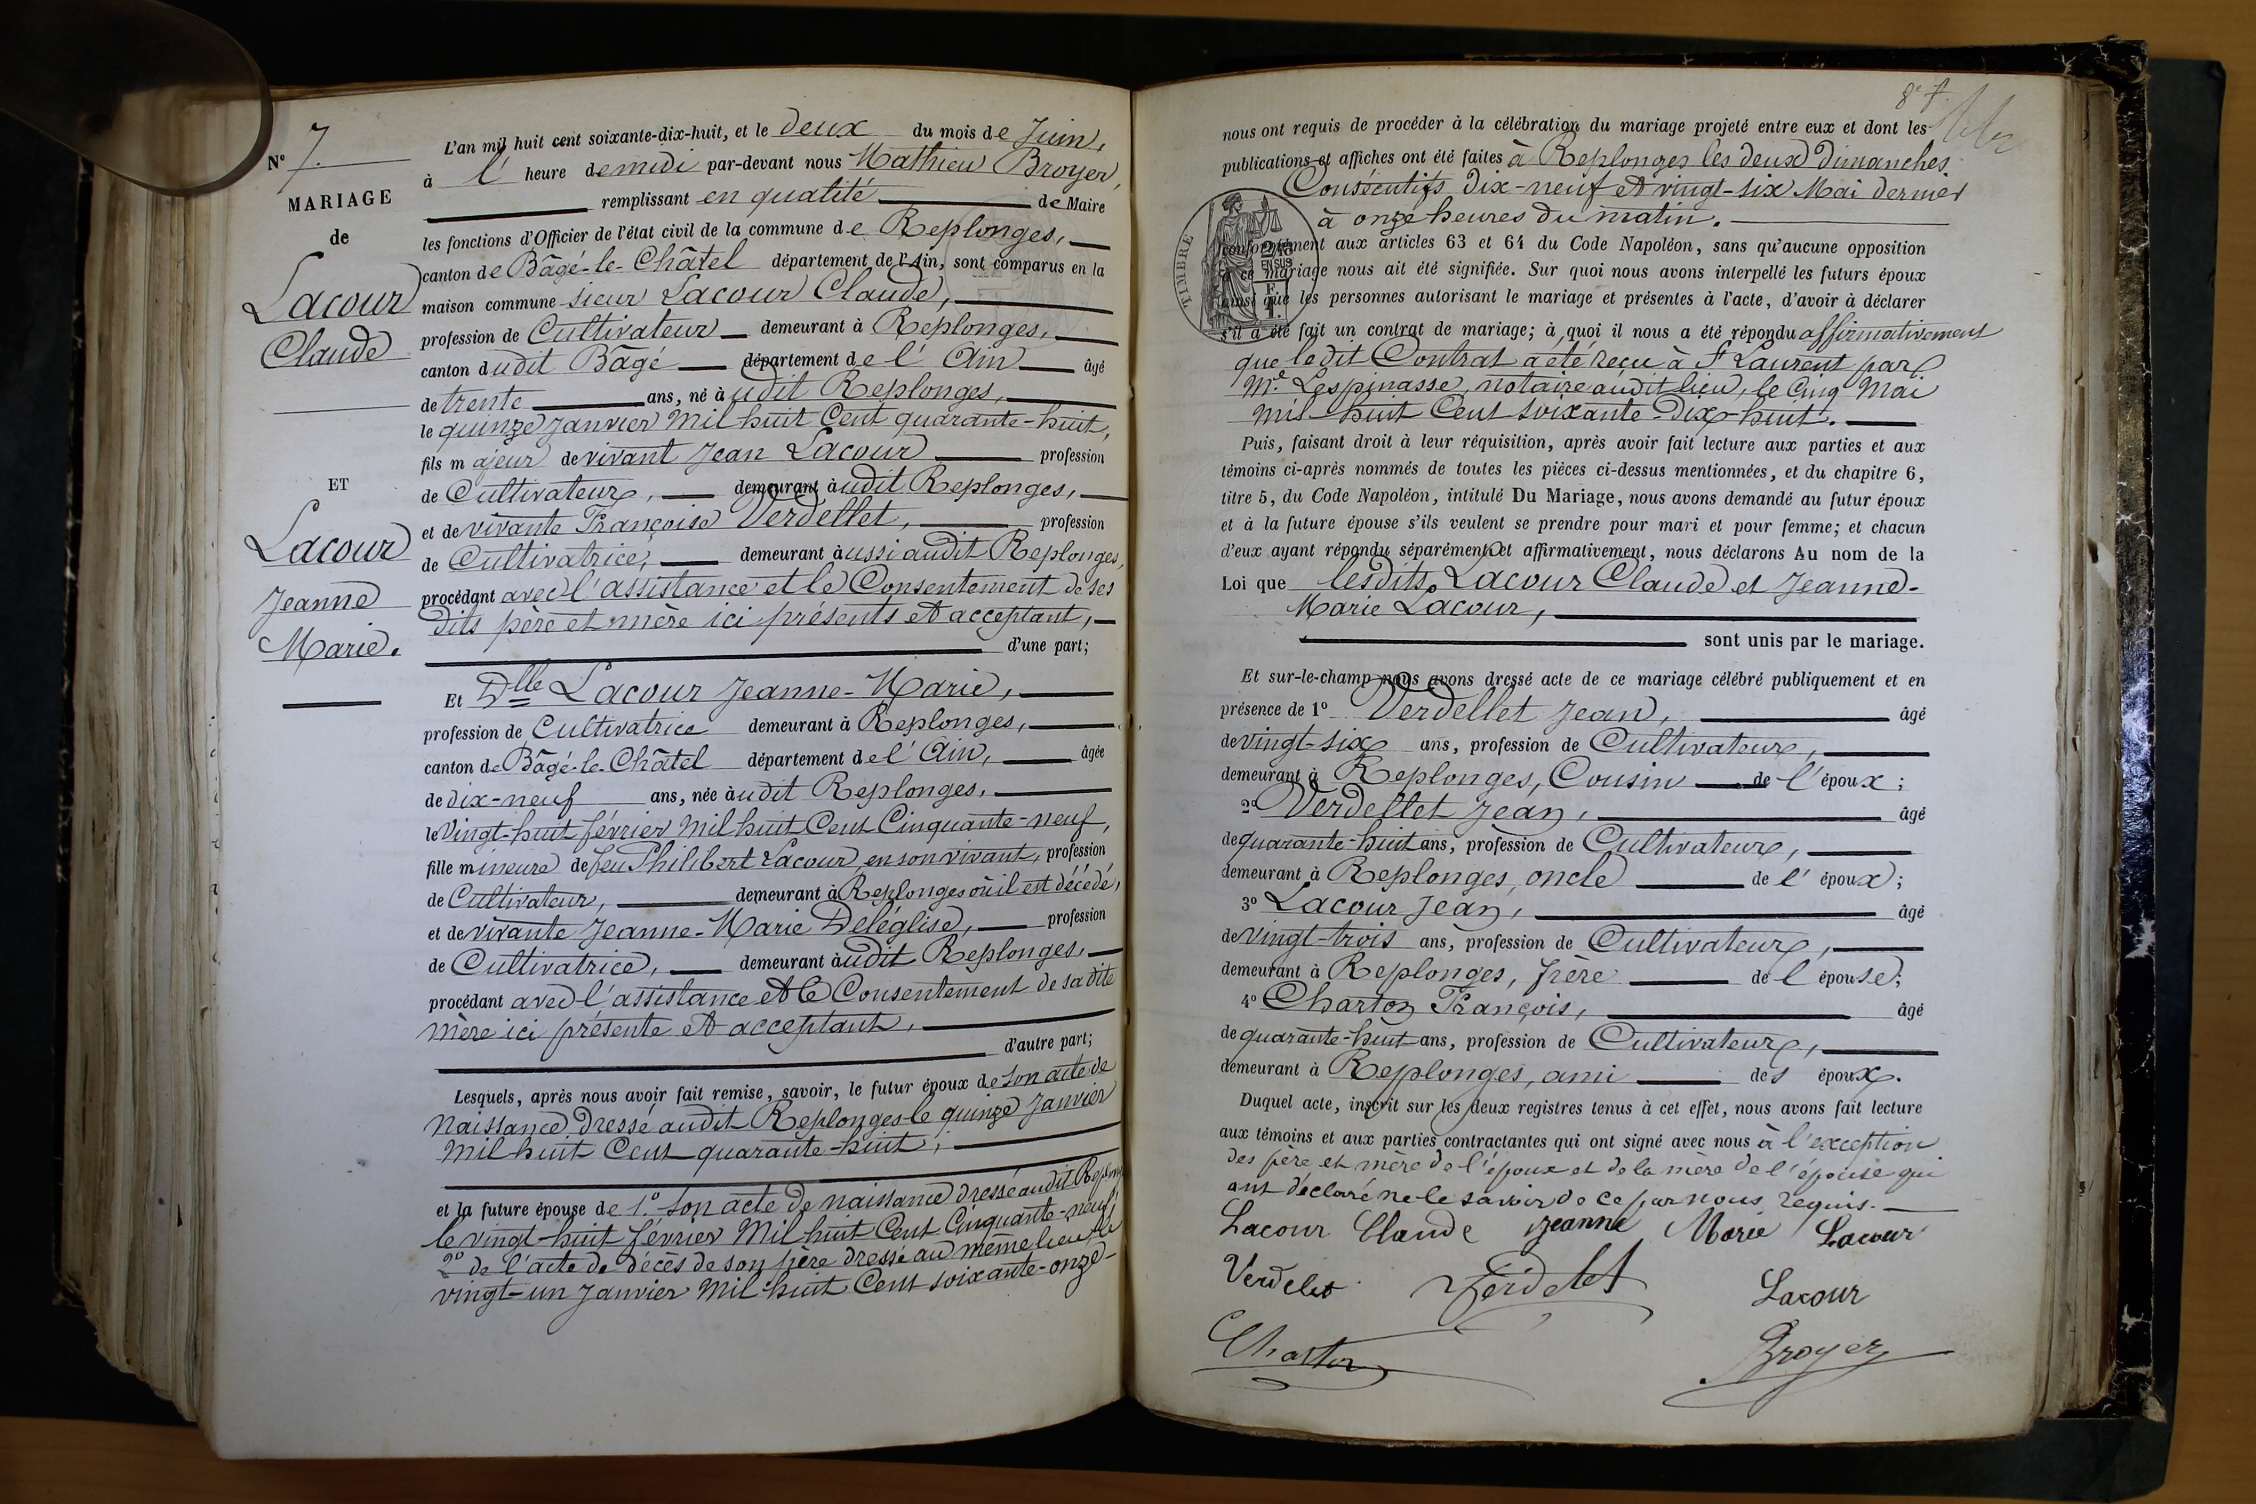 N° 7.
MARIAGE
de
Lacour
Claude
ET
Lacour
Jeanne
Marie.
L'an mil huit cent soixante-dix-huit, et le deux du mois de Juin,
à l' heure de midi par-devant nous Mathieu Broyer,
remplissant en qualité de Maire
les fonctions d'Officier de l'état civil de la commune de Replonges,
canton de Bâgé-le-Châtel département de l'Ain, sont comparus en la
maison commune sieur Lacour Claude,
profession de Cultivateur demeurant à Replonges,
canton dudit Bâgé département de l'Ain âgé
de trente ans, né àudit Replonges,
le quinze Janvier Mil huit Cent quarante-huit,
fils majeur de vivant Jean Lacour profession
de Cultivateur, demeurant àudit Replonges,
et de vivante Françoise Verdellet, profession
de Cultivatrice, demeurant àussi audit Replonges,
procédant avec l'assistance et le Consentement de ses
dits père et mère ici présents et acceptant,
d'une part;
Et Dlle Lacour Jeanne-Marie,
profession de Cultivatrice demeurant à Replonges,
canton de Bâgé-le-Châtel département de l'Ain, âgée
de dix-neuf ans, née àudit Replonges,
le Vingt-huit février Mil huit Cent Cinquante-neuf,
fille mineure de feu Philibert Lacour, en son vivant, profession
de Cultivateur, demeurant à Replonges où il est décédé,
et de vivante Jeanne-Marie Deléglise, profession
de Cultivatrice, demeurant àudit Replonges,
procédant avec l'assistance et le Consentement de sa dite
mère ici présente et acceptant,
d'autre part;
Lesquels, après nous avoir fait remise, savoir, le futur époux de son acte de
Naissance dressé audit Replonges le quinze Janvier
Mil huit Cent quarante-huit;
et la future épouse de 1.° Son acte de naissance dressé audit
le vingt-huit février Mil huit Cent Cinquante-neuf,
2° de l'acte de décès de son père dressé au même lieu, le
vingt-un Janvier Mil huit Cent soixante-onze-
8e f.
nous ont requis de procéder à la célébration du mariage projeté entre eux et dont les
publications et affiches ont été faites à Replonges les deux dimanches
Consécutifs dix-neuf et vingt-six Mai dernier
à onze heures du matin.
conformément aux articles 63 et 64 du Code Napoléon, sans qu'aucune opposition
à ce mariage nous ait été signifiée. Sur quoi nous avons interpellé les futurs époux
ainsi que les personnes autorisant le mariage et présentes à l'acte, d'avoir à déclarer
s'il a été fait un contrat de mariage; à quoi il nous a été répondu affirmativement
que le dit Contrat a été reçu à St Laurent par
Me. Lespinasse, notaire audit lieu, le Cinq Mai
Mil huit Cent soixante-Dix-huit.
TIMBRE
EN SUS
Puis, faisant droit à leur réquisition, après avoir fait lecture aux parties et aux
témoins ci-après nommés de toutes les pièces ci-dessus mentionnées, et du chapitre 6,
titre 5, du Code Napoléon, intitulé Du Mariage, nous avons demandé au futur époux
et à la future épouse s'ils veulent se prendre pour mari et pour femme; et chacun
d'eux ayant répondu séparément et affirmativement, nous déclarons Au nom de la
Loi que lesdits Lacour Claude et Jeanne-
Marie Lacour,
sont unis par le mariage.
Et sur-le-champ nous avons dressé acte de ce mariage célébré publiquement et en
présence de 1° Verdellet Jean, âgé
de vingt-six ans, profession de Cultivateur,
demeurant à Replonges, Cousin de l'époux;
2° Verdellet Jean, âgé
de quarante-huit ans, profession de Cultivateur,
demeurant à Replonges, oncle de l'époux;
3° Lacour Jean, âgé
de vingt-trois ans, profession de Cultivateur,
demeurant à Replonges, frère de l'épouse;
4° Charton François, âgé
de quarante-huit ans, profession de Cultivateur,
demeurant à Replonges, ami des époux.
Duquel acte, inscrit sur les deux registres tenus à cet effet, nous avons fait lecture
aux témoins et aux parties contractantes qui ont signé avec nous à l'exception
des père et mère de l'époux et de la mère de l'épouse qui
ont déclaré ne le savoir de ce par nous requis.
Lacour Claude Jeanne Marie Lacour
Verdelet Verdelet Lacour
Charton Broyer